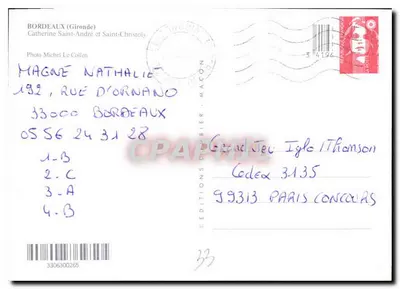 BORDEAUX (Gironde)
Cathédrale Saint-André et Saint-Christoly
Photo Michel Le Collen
MAGNE NATHALIE
192, RUE D'ORNANO
33000 BORDEAUX
05 56 24 31 28
1-B
2-C
3-A
4-B
Grand Jeu Iglo / Thomson
Cedex 3135
99313 PARIS CONCOURS
CPARAMA
33